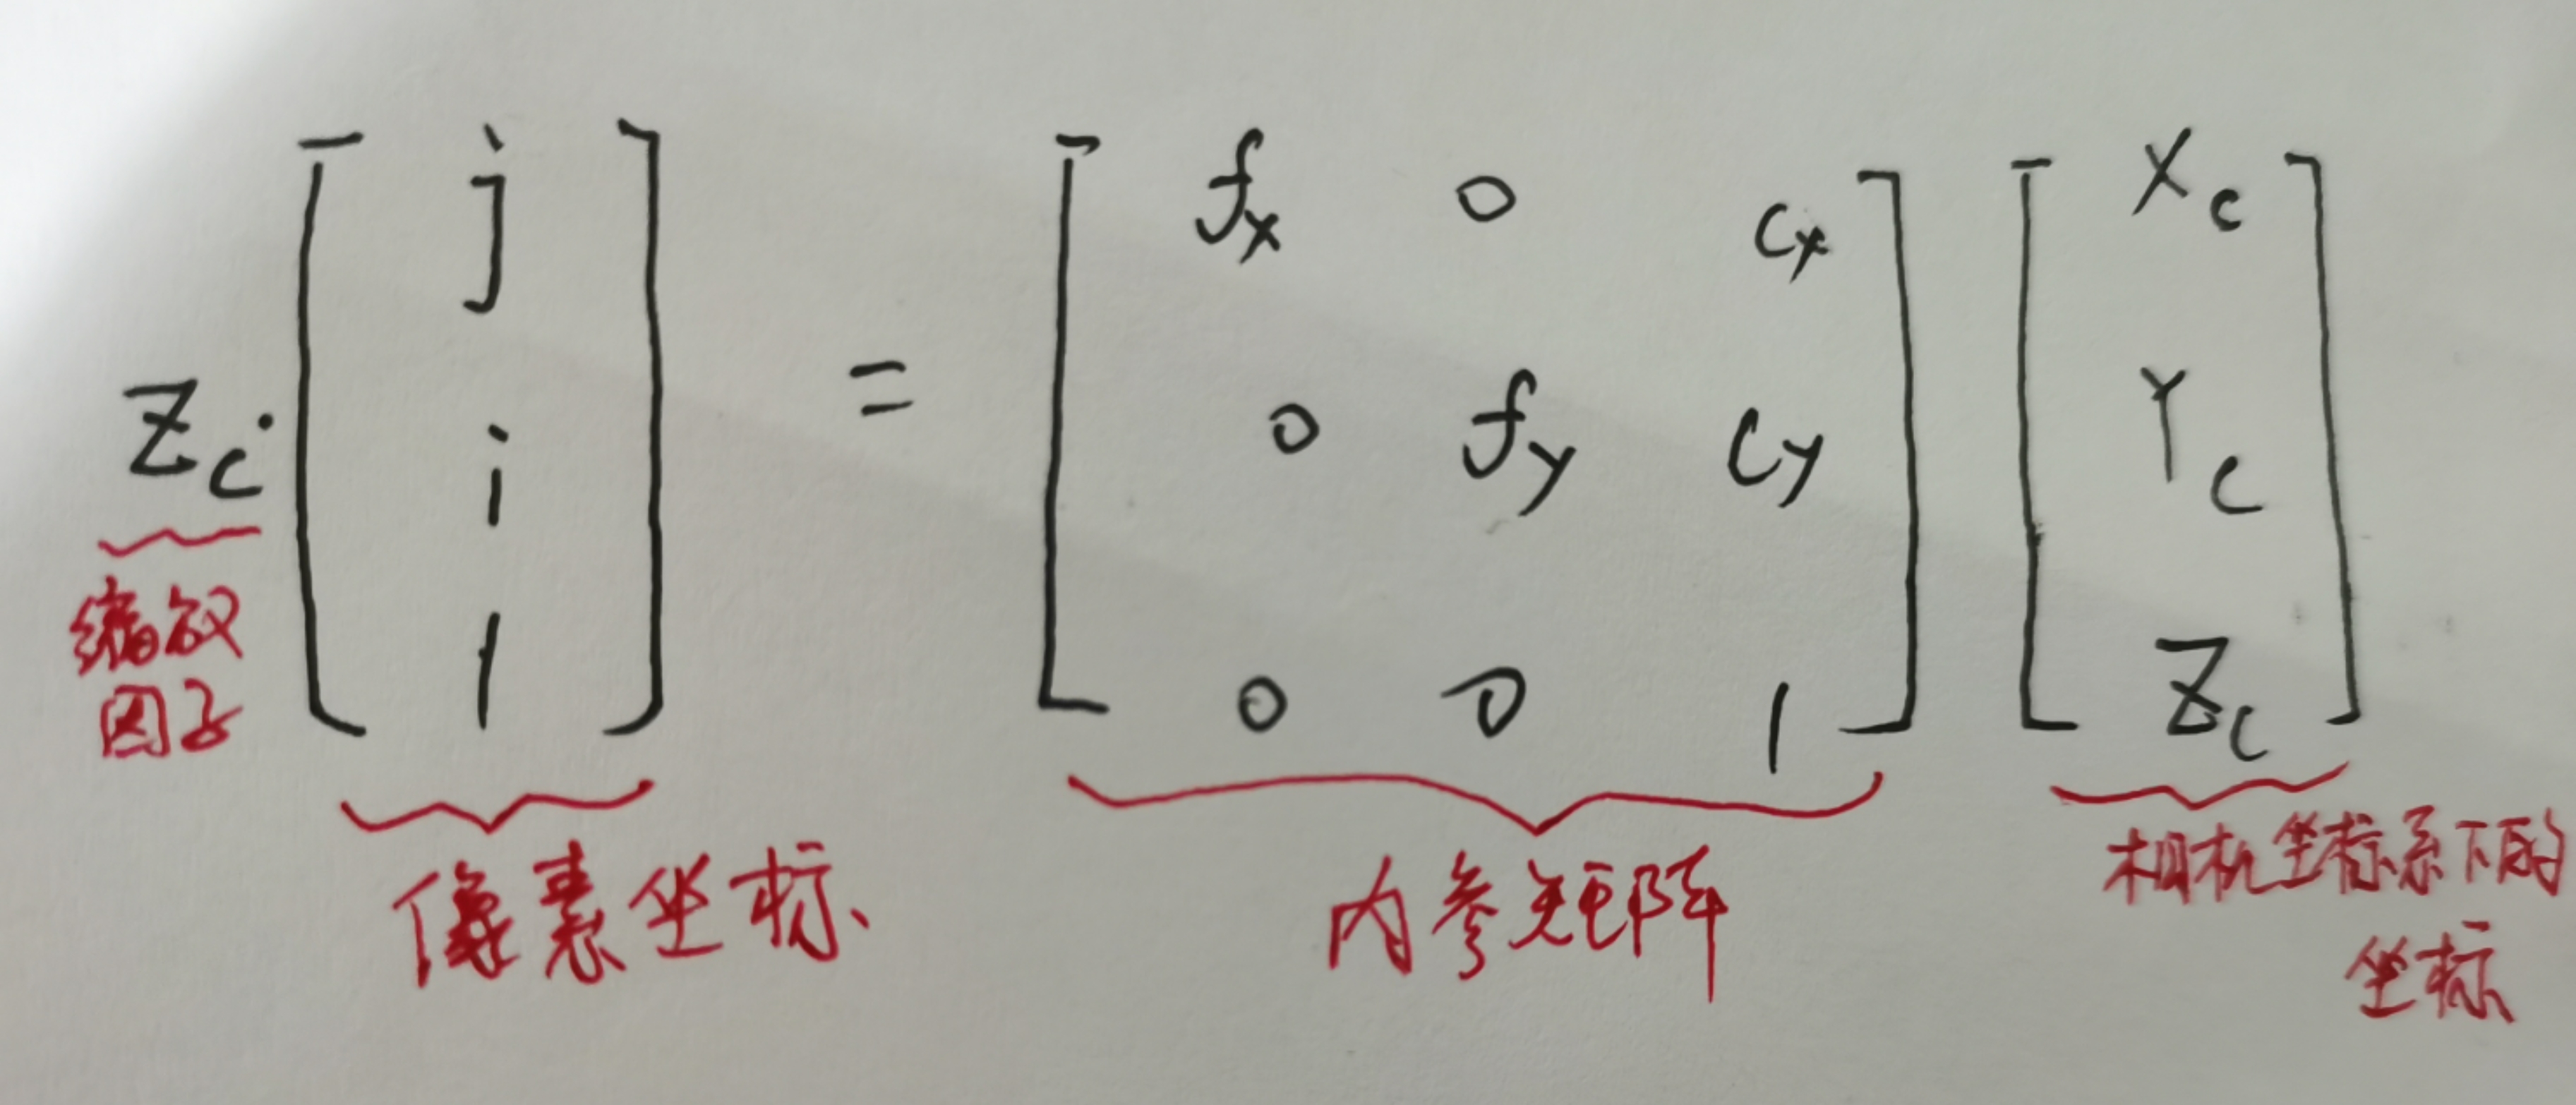 Zc · [ j i 1 ] = [ fx 0 cx 0 fy cy 0 0 1 ] [ Xc Yc Zc ]
缩放
因子
像素坐标
内参矩阵
相机坐标系下的
坐标